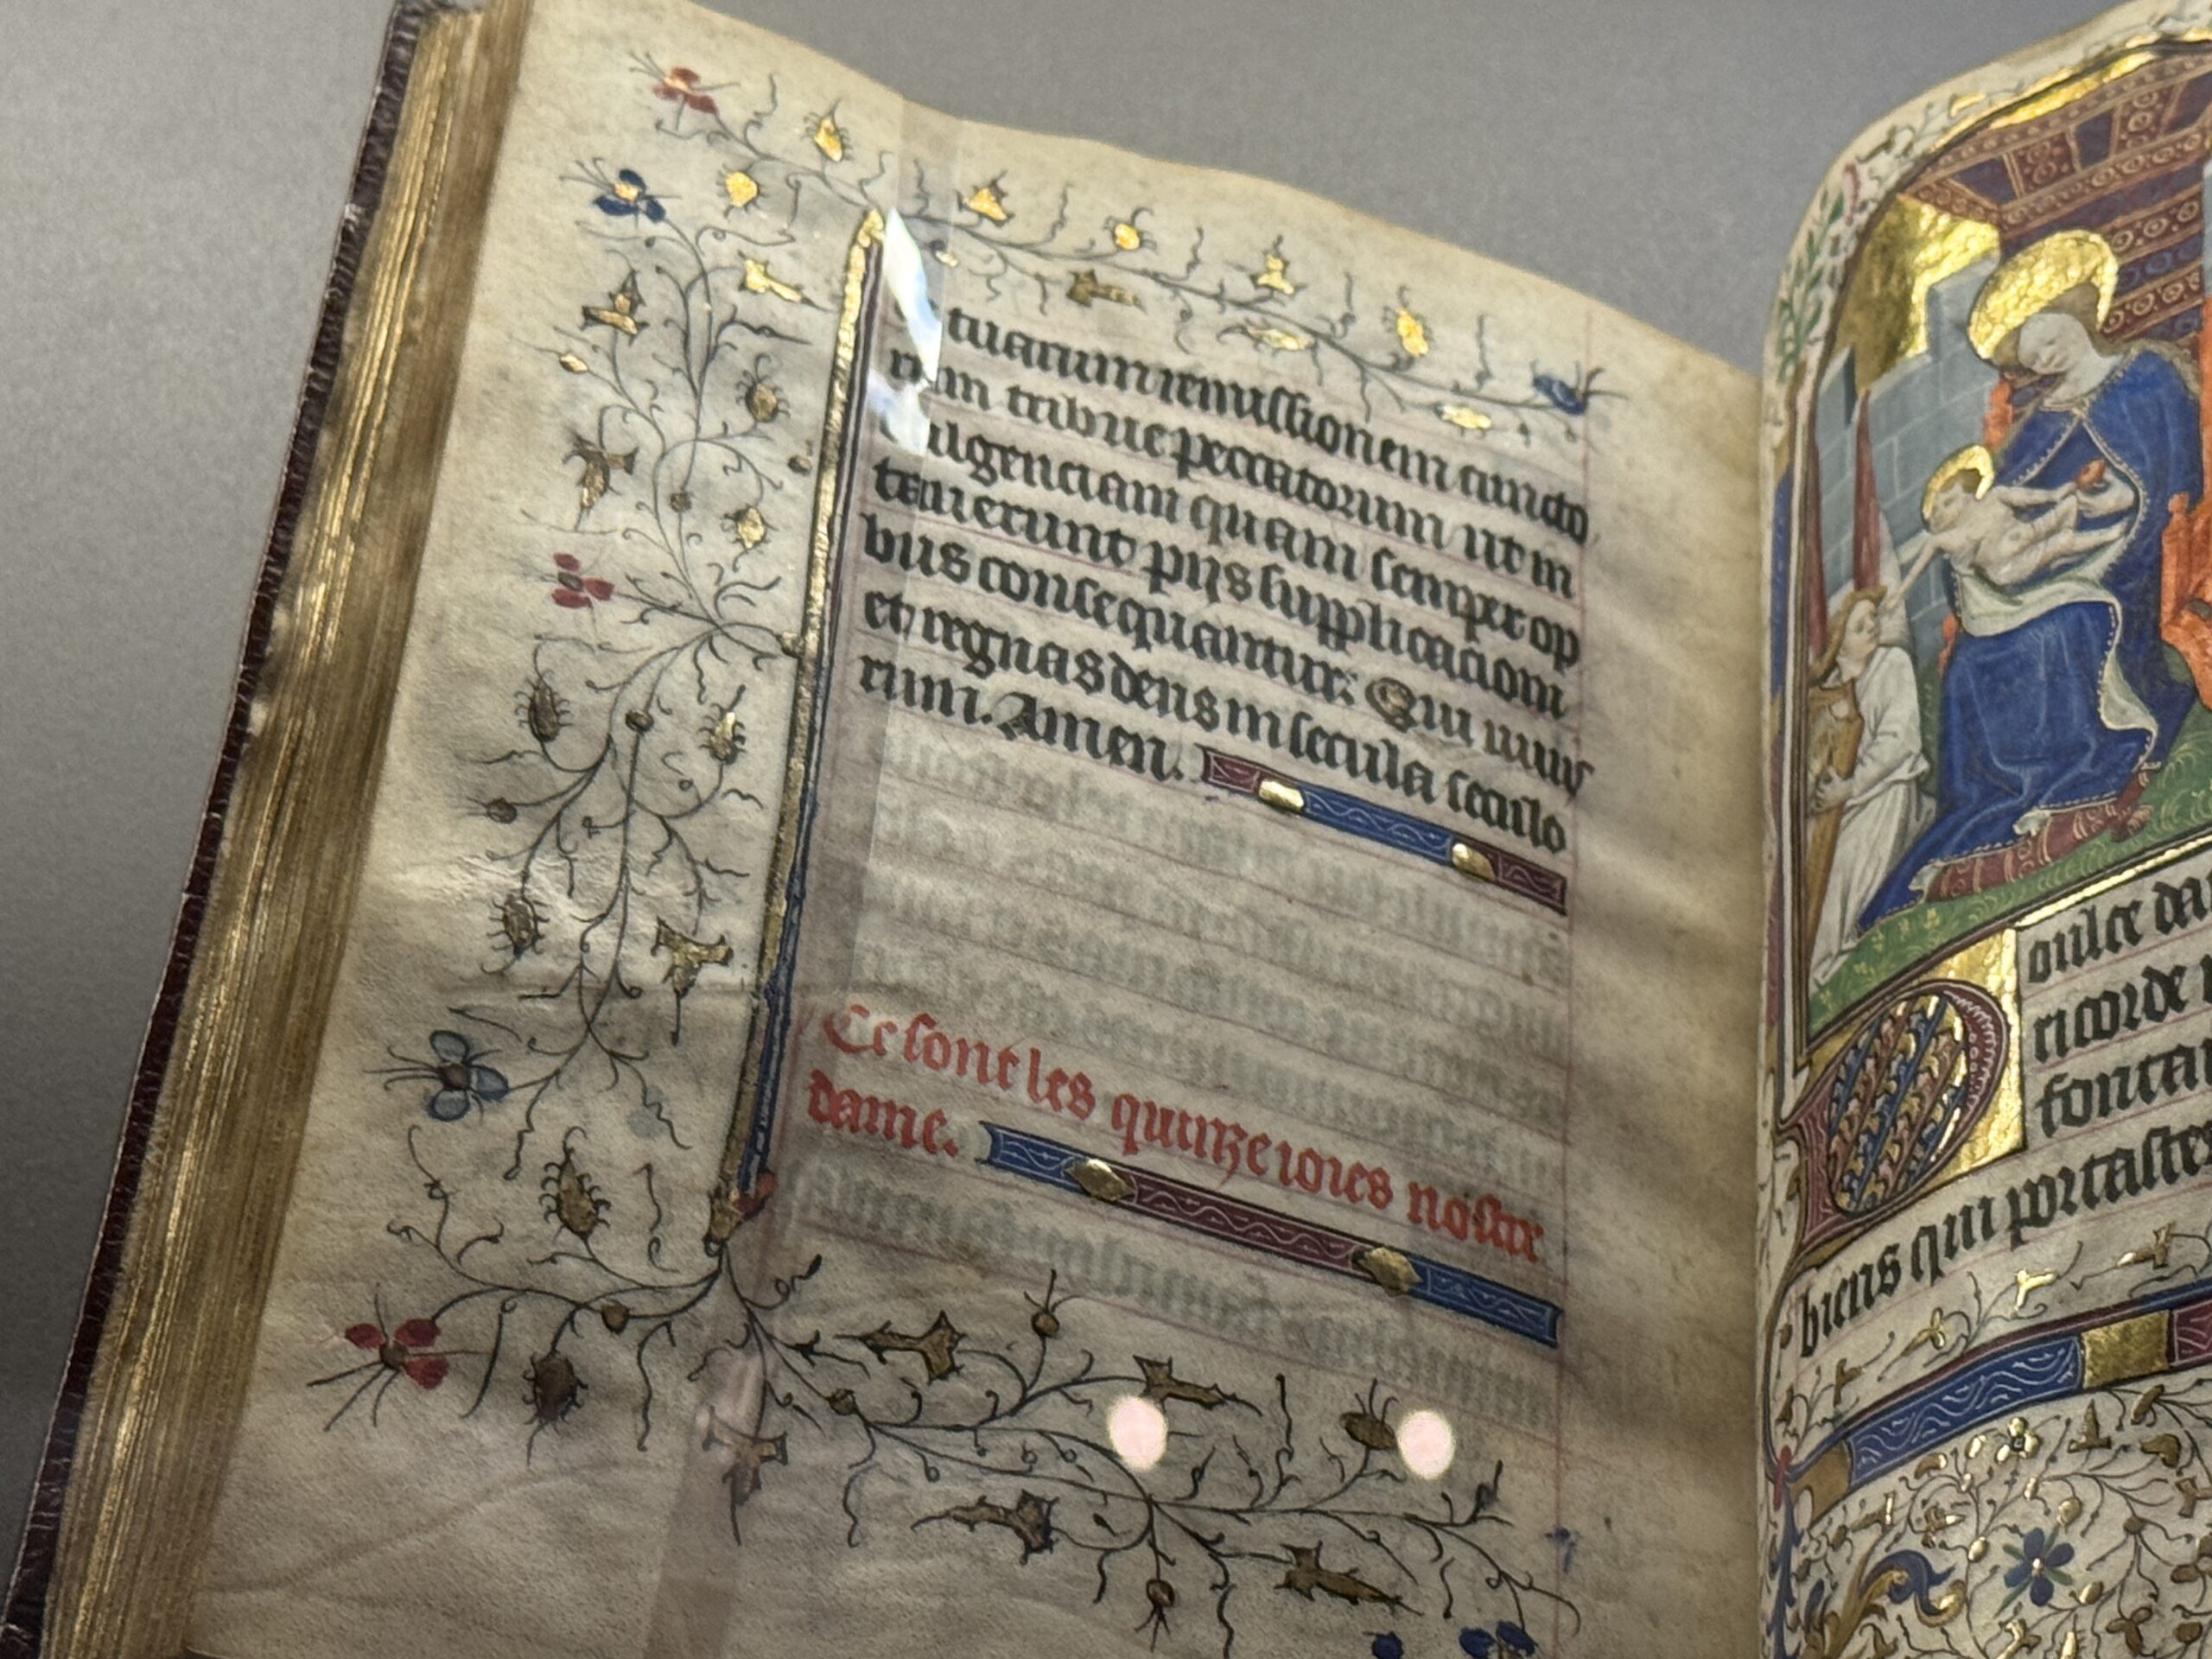 tuarum remissionem cuncto
rum tribue peccatorum ut in
dulgenciam quam semper op
tauerunt piis supplicacioni
bus consequantur: Qui viuis
et regnas deus in secula seculo
rum. Amen.
Ce sont les quinze ioies nostre
dame.
oulce da
ricorde
fontai
biens qui portastes